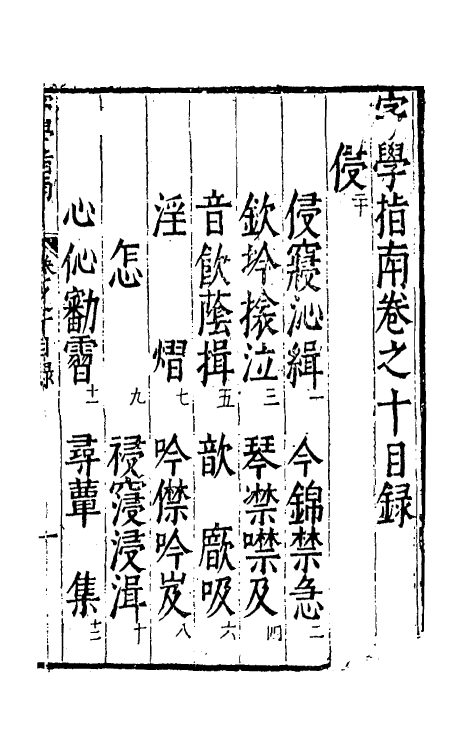 字學指南卷之十目録
侵二十
侵寢沁緝一　今錦禁急二
欽坅搇泣三　琴噤噤及四
音飲蔭揖五　歆　廞吸六
淫　　熠七　吟僸吟岌八
怎九　祲寑浸湒十
心伈勷霫十一　尋蕈　集十二
字學指南　卷之十目録　一